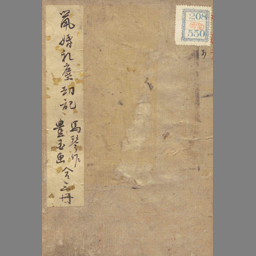 鼠婚礼塵劫記
馬琴作
豊国画
全三冊
208
550